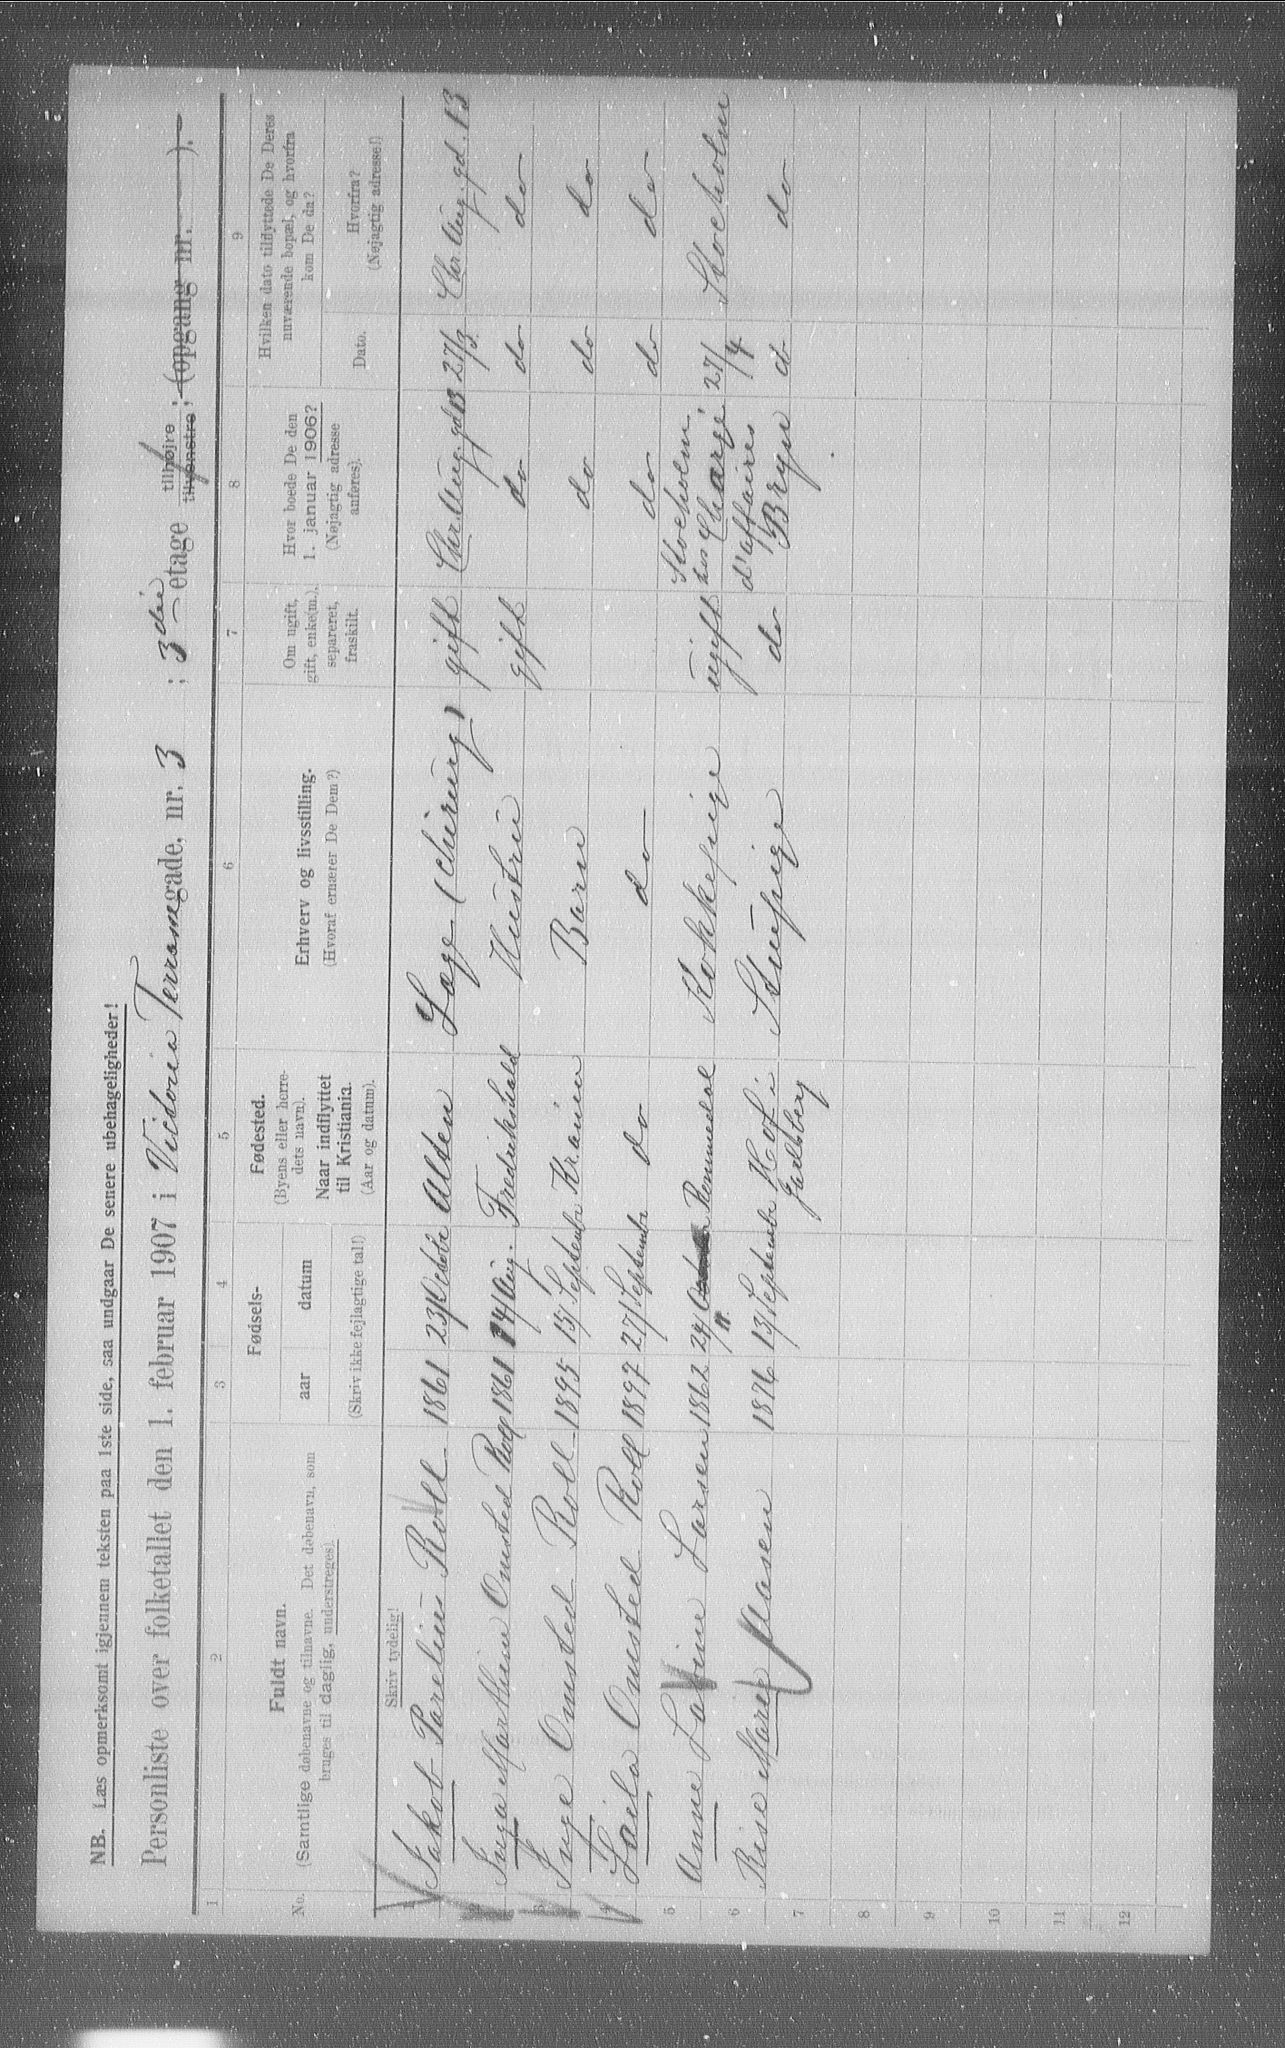 NB. Læs opmerksomt igjennem teksten paa 1ste side, saa undgaar De senere ubehageligheder!
Personliste over folketallet den 1. februar 1907 i Victoria Terrassegade, nr. 3 ; 3die etage tilhøjre tilvenstre ; (opgang nr. ).
1 2 3 4 5 6 7 8 9
No.
Fuldt navn.
(Samtlige døbenavne og tilnavne. Det døbenavn, som
bruges til daglig, understreges).
Fødsels-
aar datum
(Skriv ikke fejlagtige tal!)
Fødested.
(Byens eller herre-
dets navn).
Naar indflyttet
til Kristiania.
(Aar og datum).
Erhverv og livsstilling.
(Hvoraf ernærer De Dem?)
Om ugift,
gift, enke(m.),
separeret,
fraskilt.
Hvor boede De den
1. januar 1906?
(Nøjagtig adresse
anføres).
Hvilken dato tilflyttede De Deres
nuværende bopæl, og hvorfra
kom De da?
Dato.
Hvorfra?
(Nøjagtig adresse!)
Skriv tydelig!
1 Jakob Parelius Roll 1861 23/Octobr Alten Læge (chirurg) gift Chr. Aug. gd 13 27/3. Chr. Aug. gd. 13
2 Inga Marthine Omsted Roll 1861 14/Aug. Fredrikshald Hustru gift do do do
3 Inge Omsted Roll 1895 15/Septembr Kr.ania Barn do do do
4 Laila Omsted Roll 1897 27/Septembr do do do do do
5 Anne Lovine Larsen 1862 24/11 Rommedal Kokkepige ugift Stockholm hos Chargé 27/4 Stockholm
6 Rise Marie Aasen 1876 13/Septembr Hof i Jarlsberg Stuepige do d'affaires Bryn do do
7
8
9
10
11
12